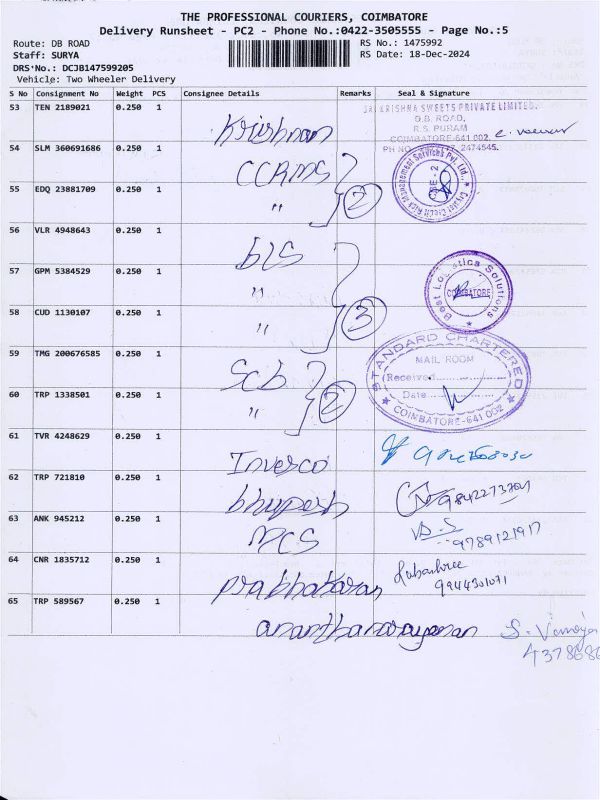 THE PROFESSIONAL COURIERS, COIMBATORE
Delivery Runsheet - PC2 - Phone No.:0422-3505555 - Page No.:5
Route: DB ROAD
RS No.: 1475992
Staff: SURYA
RS Date: 18-Dec-2024
DRS No.: DCJB147599205
Vehicle: Two Wheeler Delivery
S No Consignment No Weight PCS Consignee Details Remarks Seal & Signature
53 TEN 2189021 0.250 1 Krishnan
KRISHNA SWEETS PRIVATE LIMITED.
D.B. ROAD,
R.S. PURAM
COIMBATORE-641 002.
PH NO. 2474545.
54 SLM 360691686 0.250 1 CCRMS
55 EDQ 23881709 0.250 1 "
2
56 VLR 4948643 0.250 1 BLS
57 GPM 5384529 0.250 1 "
58 CUD 1130107 0.250 1 "
3
Best Logistics Solutions
COIMBATORE
59 TMG 200676585 0.250 1 Scb
60 TRP 1338501 0.250 1 "
2
STANDARD CHARTERED
MAIL ROOM
Received
Date
COIMBATORE-641 002
61 TVR 4248629 0.250 1 Invesco
62 TRP 721810 0.250 1 bhupesh
63 ANK 945212 0.250 1 MCS
9789121917
64 CNR 1835712 0.250 1 prabhakaran
9944301071
65 TRP 589567 0.250 1 anantha narayanan